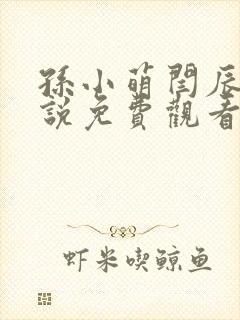 孫小萌閆辰
説免費觀看
虾米喫鲸鱼